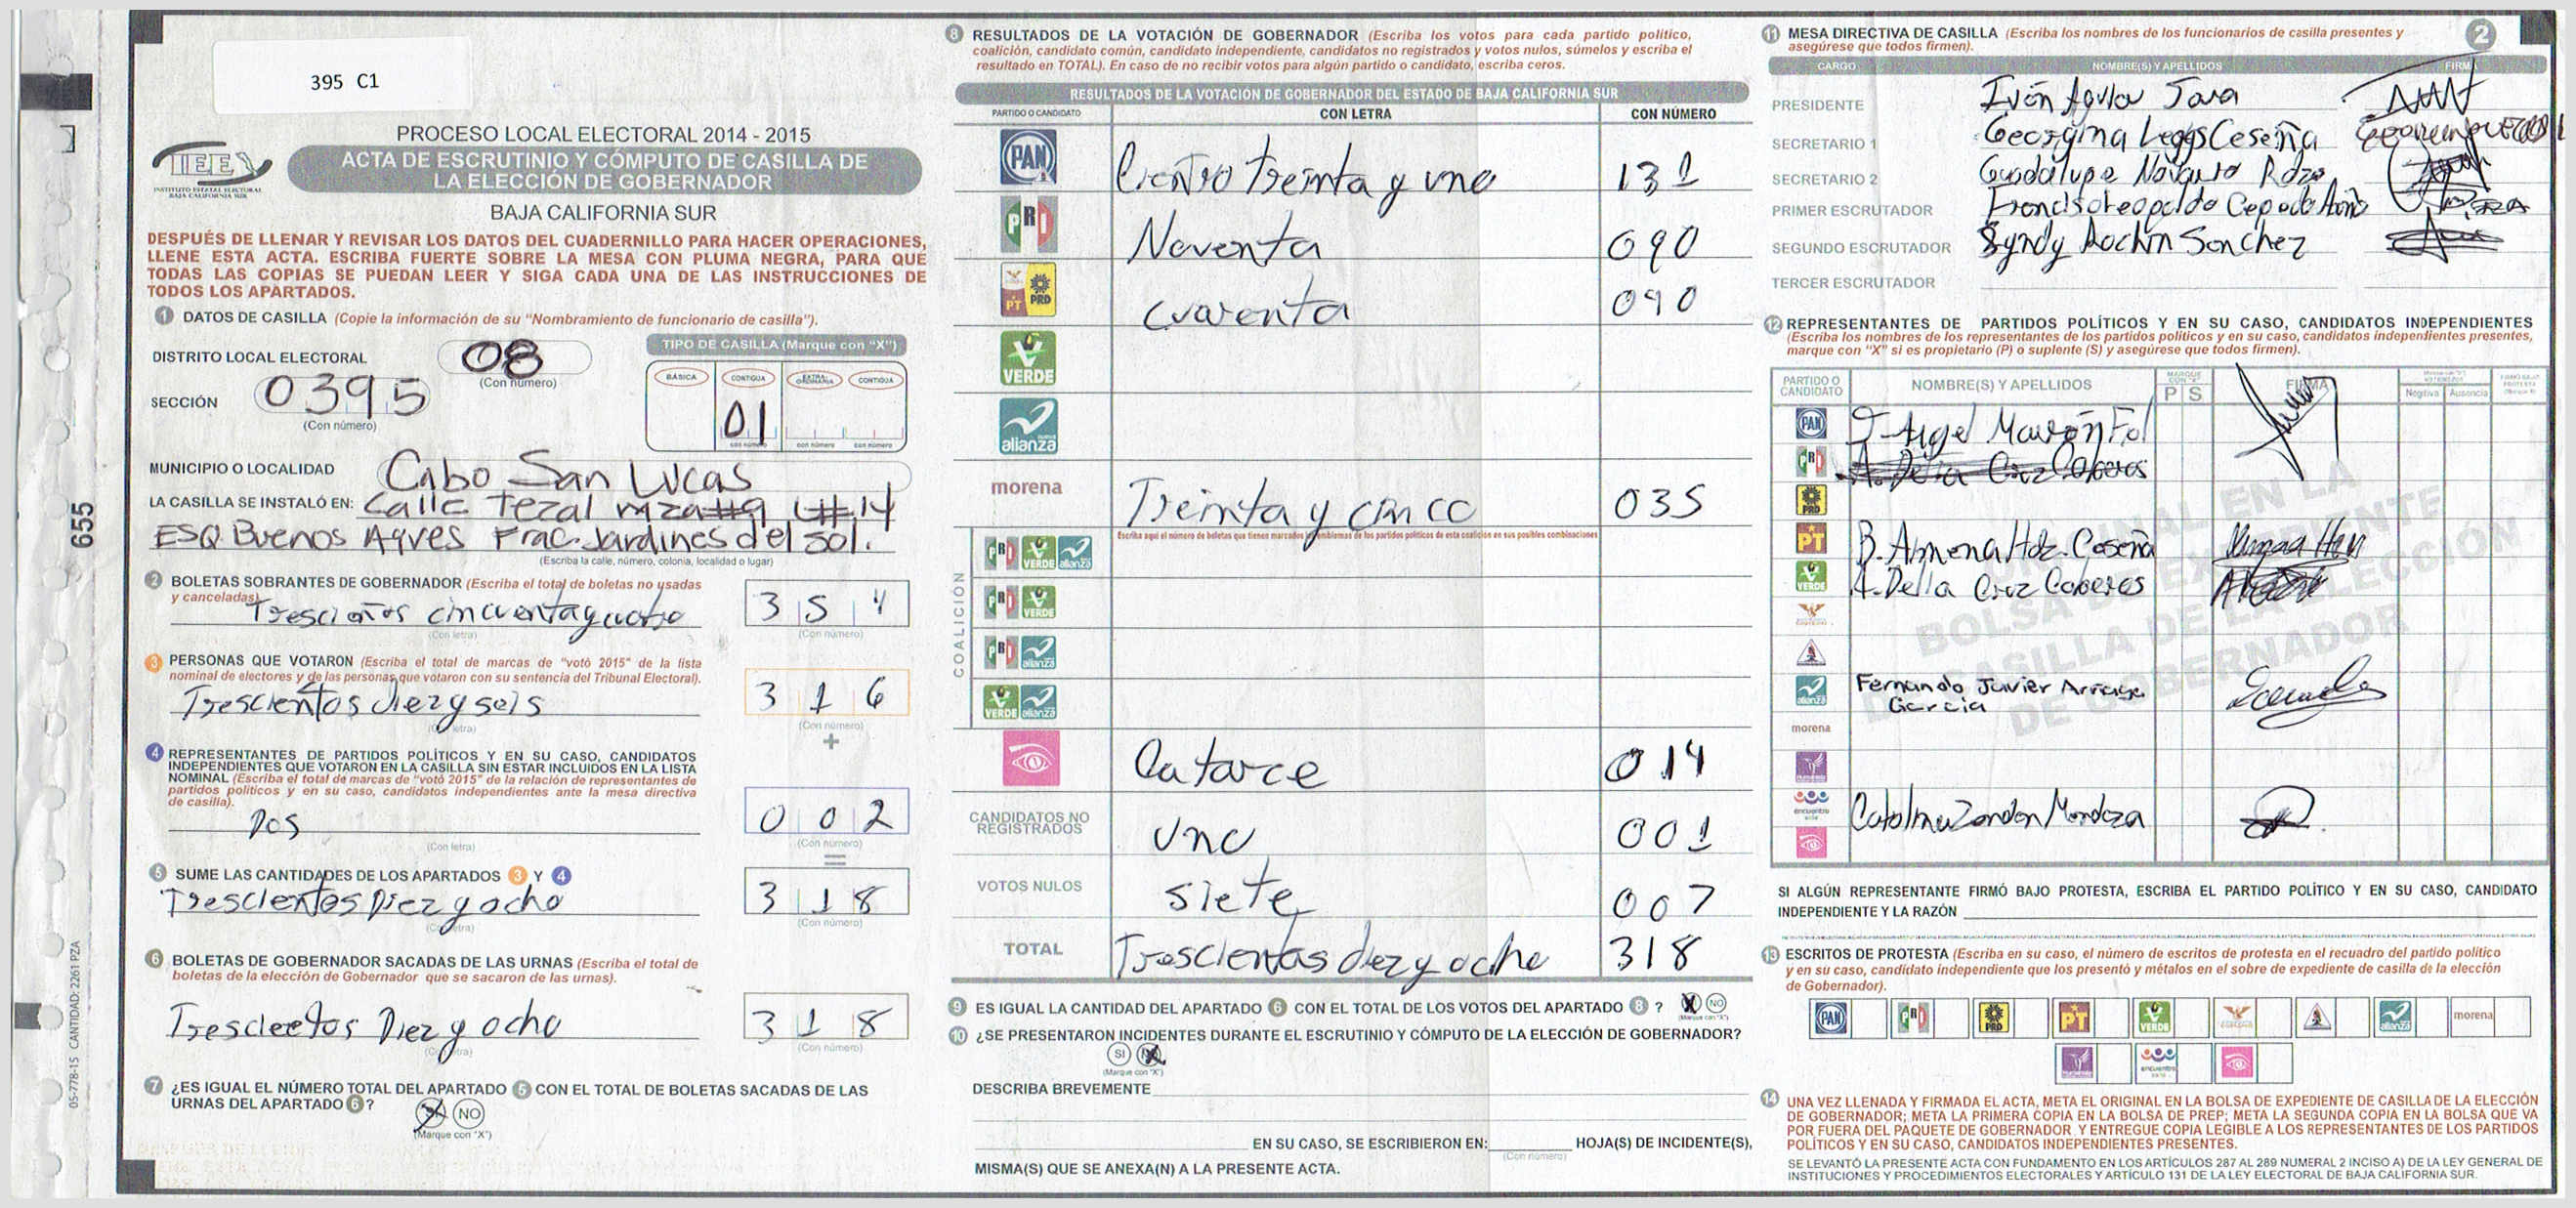 395 C1
655
05-778-15 CANTIDAD: 2261 PZA
IEE
INSTITUTO ESTATAL ELECTORAL
BAJA CALIFORNIA SUR
PROCESO LOCAL ELECTORAL 2014 - 2015
ACTA DE ESCRUTINIO Y CÓMPUTO DE CASILLA DE
LA ELECCIÓN DE GOBERNADOR
BAJA CALIFORNIA SUR
DESPUÉS DE LLENAR Y REVISAR LOS DATOS DEL CUADERNILLO PARA HACER OPERACIONES,
LLENE ESTA ACTA. ESCRIBA FUERTE SOBRE LA MESA CON PLUMA NEGRA, PARA QUE
TODAS LAS COPIAS SE PUEDAN LEER Y SIGA CADA UNA DE LAS INSTRUCCIONES DE
TODOS LOS APARTADOS.
1 DATOS DE CASILLA (Copie la información de su "Nombramiento de funcionario de casilla").
DISTRITO LOCAL ELECTORAL 08
(Con número)
SECCIÓN 0395
(Con número)
TIPO DE CASILLA (Marque con "X")
BÁSICA CONTIGUA EXTRAORDINARIA CONTIGUA
01
con número con número con número
MUNICIPIO O LOCALIDAD Cabo San Lucas
LA CASILLA SE INSTALÓ EN: Calle Tezal mza#9 L#14
ESQ Buenos Ayres Frac. Jardines del sol.
(Escriba la calle, número, colonia, localidad o lugar)
2 BOLETAS SOBRANTES DE GOBERNADOR (Escriba el total de boletas no usadas
y canceladas).
354
(Con letra) (Con número)
3 PERSONAS QUE VOTARON (Escriba el total de marcas de "votó 2015" de la lista
nominal de electores y de las personas que votaron con su sentencia del Tribunal Electoral).
Trescientos diez y seis 316
(Con letra) (Con número)
+
4 REPRESENTANTES DE PARTIDOS POLÍTICOS Y EN SU CASO, CANDIDATOS
INDEPENDIENTES QUE VOTARON EN LA CASILLA SIN ESTAR INCLUIDOS EN LA LISTA
NOMINAL (Escriba el total de marcas de "votó 2015" de la relación de representantes de
partidos políticos y en su caso, candidatos independientes ante la mesa directiva
de casilla).
Dos 002
(Con letra) (Con número)
=
5 SUME LAS CANTIDADES DE LOS APARTADOS 3 Y 4
Trescientos Diez y ocho 318
(Con letra) (Con número)
6 BOLETAS DE GOBERNADOR SACADAS DE LAS URNAS (Escriba el total de
boletas de la elección de Gobernador que se sacaron de las urnas).
Diez y ocho 318
(Con letra) (Con número)
7 ¿ES IGUAL EL NÚMERO TOTAL DEL APARTADO 5 CON EL TOTAL DE BOLETAS SACADAS DE LAS
URNAS DEL APARTADO 6 ? SI NO
(Marque con "X")
8 RESULTADOS DE LA VOTACIÓN DE GOBERNADOR (Escriba los votos para cada partido político,
coalición, candidato común, candidato independiente, candidatos no registrados y votos nulos, súmelos y escriba el
resultado en TOTAL). En caso de no recibir votos para algún partido o candidato, escriba ceros.
RESULTADOS DE LA VOTACIÓN DE GOBERNADOR DEL ESTADO DE BAJA CALIFORNIA SUR
PARTIDO O CANDIDATO CON LETRA CON NÚMERO
PAN Ciento treinta y uno 131
PRI Noventa 090
PT PRD cuarenta 040
VERDE
alianza
morena Treinta y cinco 035
Escriba aquí el número de boletas que tienen marcados los emblemas de los partidos políticos de esta coalición en sus posibles combinaciones
COALICIÓN
PRI VERDE alianza
PRI VERDE
PRI alianza
VERDE alianza
Catorce 014
CANDIDATOS NO
REGISTRADOS uno 001
VOTOS NULOS siete 007
TOTAL Trescientos diez y ocho 318
9 ES IGUAL LA CANTIDAD DEL APARTADO 6 CON EL TOTAL DE LOS VOTOS DEL APARTADO 8 ? SI NO
(Marque con "X")
10 ¿SE PRESENTARON INCIDENTES DURANTE EL ESCRUTINIO Y CÓMPUTO DE LA ELECCIÓN DE GOBERNADOR?
SI NO
(Marque con "X")
DESCRIBA BREVEMENTE
EN SU CASO, SE ESCRIBIERON EN: HOJA(S) DE INCIDENTE(S),
(Con número)
MISMA(S) QUE SE ANEXA(N) A LA PRESENTE ACTA.
11 MESA DIRECTIVA DE CASILLA (Escriba los nombres de los funcionarios de casilla presentes y
asegúrese que todos firmen).
2
CARGO NOMBRE(S) Y APELLIDOS FIRMA
PRESIDENTE Iván Jara
SECRETARIO 1 Georgina Leggs Ceseña
SECRETARIO 2 Guadalupe
PRIMER ESCRUTADOR
SEGUNDO ESCRUTADOR Syndy Rochin Sanchez
TERCER ESCRUTADOR
12 REPRESENTANTES DE PARTIDOS POLÍTICOS Y EN SU CASO, CANDIDATOS INDEPENDIENTES
(Escriba los nombres de los representantes de los partidos políticos y en su caso, candidatos independientes presentes,
marque con "X" si es propietario (P) o suplente (S) y asegúrese que todos firmen).
PARTIDO O
CANDIDATO NOMBRE(S) Y APELLIDOS MARQUE CON "X" P S FIRMA Negativa Ausencia
PAN
PRI A. Delia Cruz
PRD
PT B. Hdz. Ceseña
VERDE A. Delia Cruz
alianza Fernando Javier Arriaga
Garcia
morena
encuentro Catalina Mendoza
ORIGINAL EN LA
BOLSA DE EXPEDIENTE
DE CASILLA DE LA ELECCIÓN
DE GOBERNADOR
SI ALGÚN REPRESENTANTE FIRMÓ BAJO PROTESTA, ESCRIBA EL PARTIDO POLÍTICO Y EN SU CASO, CANDIDATO
INDEPENDIENTE Y LA RAZÓN
13 ESCRITOS DE PROTESTA (Escriba en su caso, el número de escritos de protesta en el recuadro del partido político
y en su caso, candidato independiente que los presentó y métalos en el sobre de expediente de casilla de la elección
de Gobernador).
PAN PRI PRD PT VERDE alianza morena
encuentro
14 UNA VEZ LLENADA Y FIRMADA EL ACTA, META EL ORIGINAL EN LA BOLSA DE EXPEDIENTE DE CASILLA DE LA ELECCIÓN
DE GOBERNADOR; META LA PRIMERA COPIA EN LA BOLSA DE PREP; META LA SEGUNDA COPIA EN LA BOLSA QUE VA
POR FUERA DEL PAQUETE DE GOBERNADOR Y ENTREGUE COPIA LEGIBLE A LOS REPRESENTANTES DE LOS PARTIDOS
POLÍTICOS Y EN SU CASO, CANDIDATOS INDEPENDIENTES PRESENTES.
SE LEVANTÓ LA PRESENTE ACTA CON FUNDAMENTO EN LOS ARTÍCULOS 287 AL 289 NUMERAL 2 INCISO A) DE LA LEY GENERAL DE
INSTITUCIONES Y PROCEDIMIENTOS ELECTORALES Y ARTÍCULO 131 DE LA LEY ELECTORAL DE BAJA CALIFORNIA SUR.